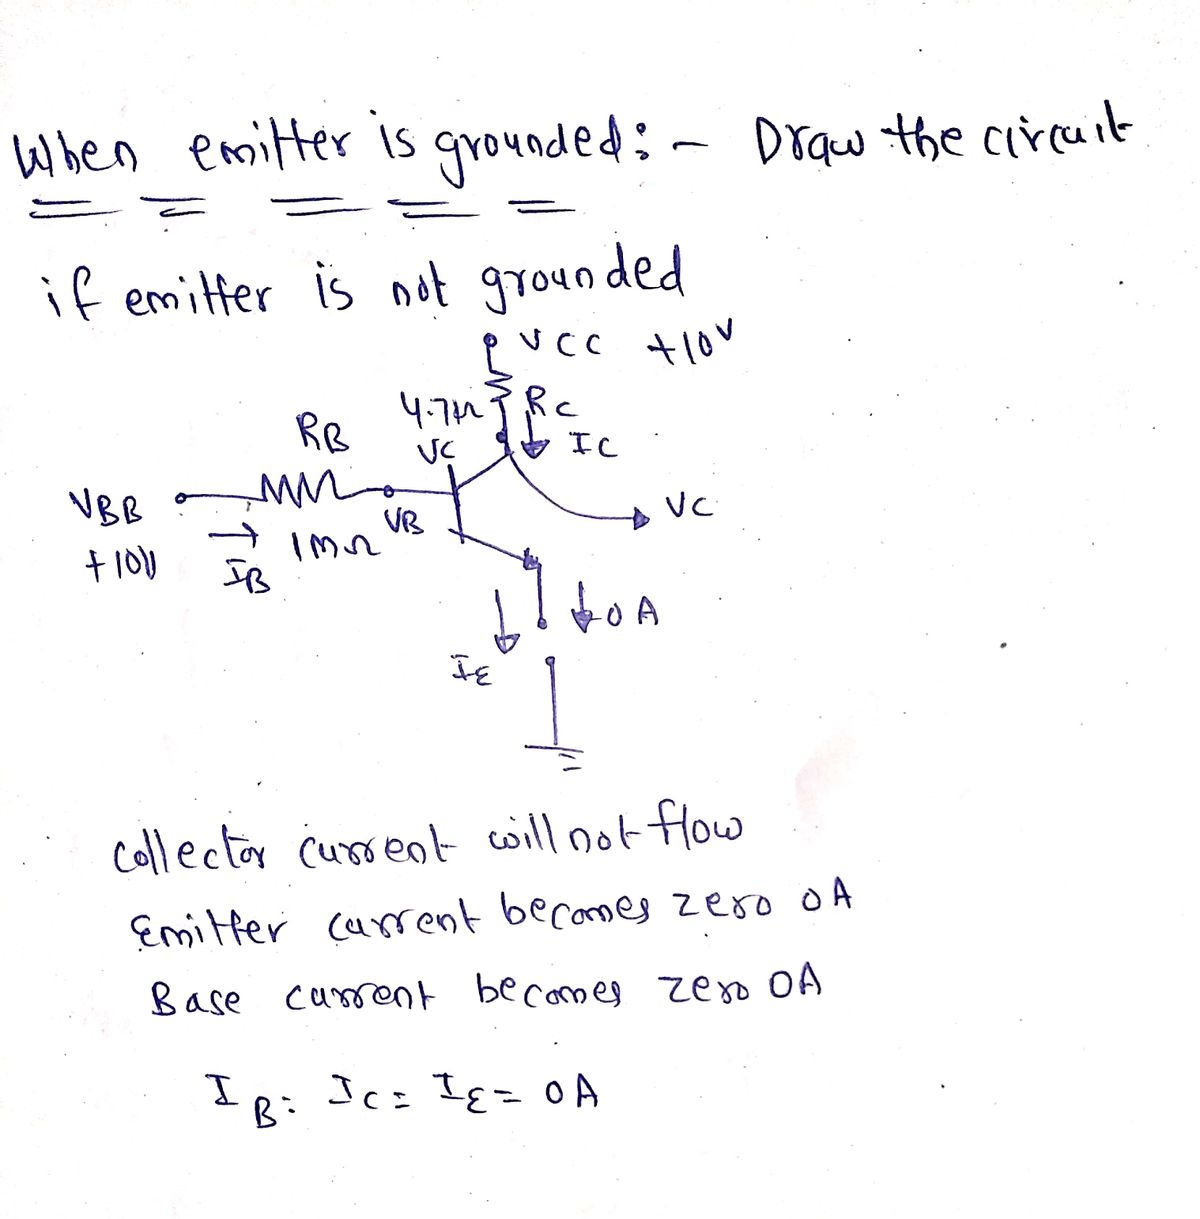 When emitter is grounded :- Draw the circuit
if emitter is not grounded
VCC +10V
4.7kΩ RC
RB VC IC
VBB VB VC
+10V IB 1MΩ
0A
IE
Collector current will not flow
Emitter current becomes zero 0A
Base current becomes zero 0A
IB = IC = IE = 0A